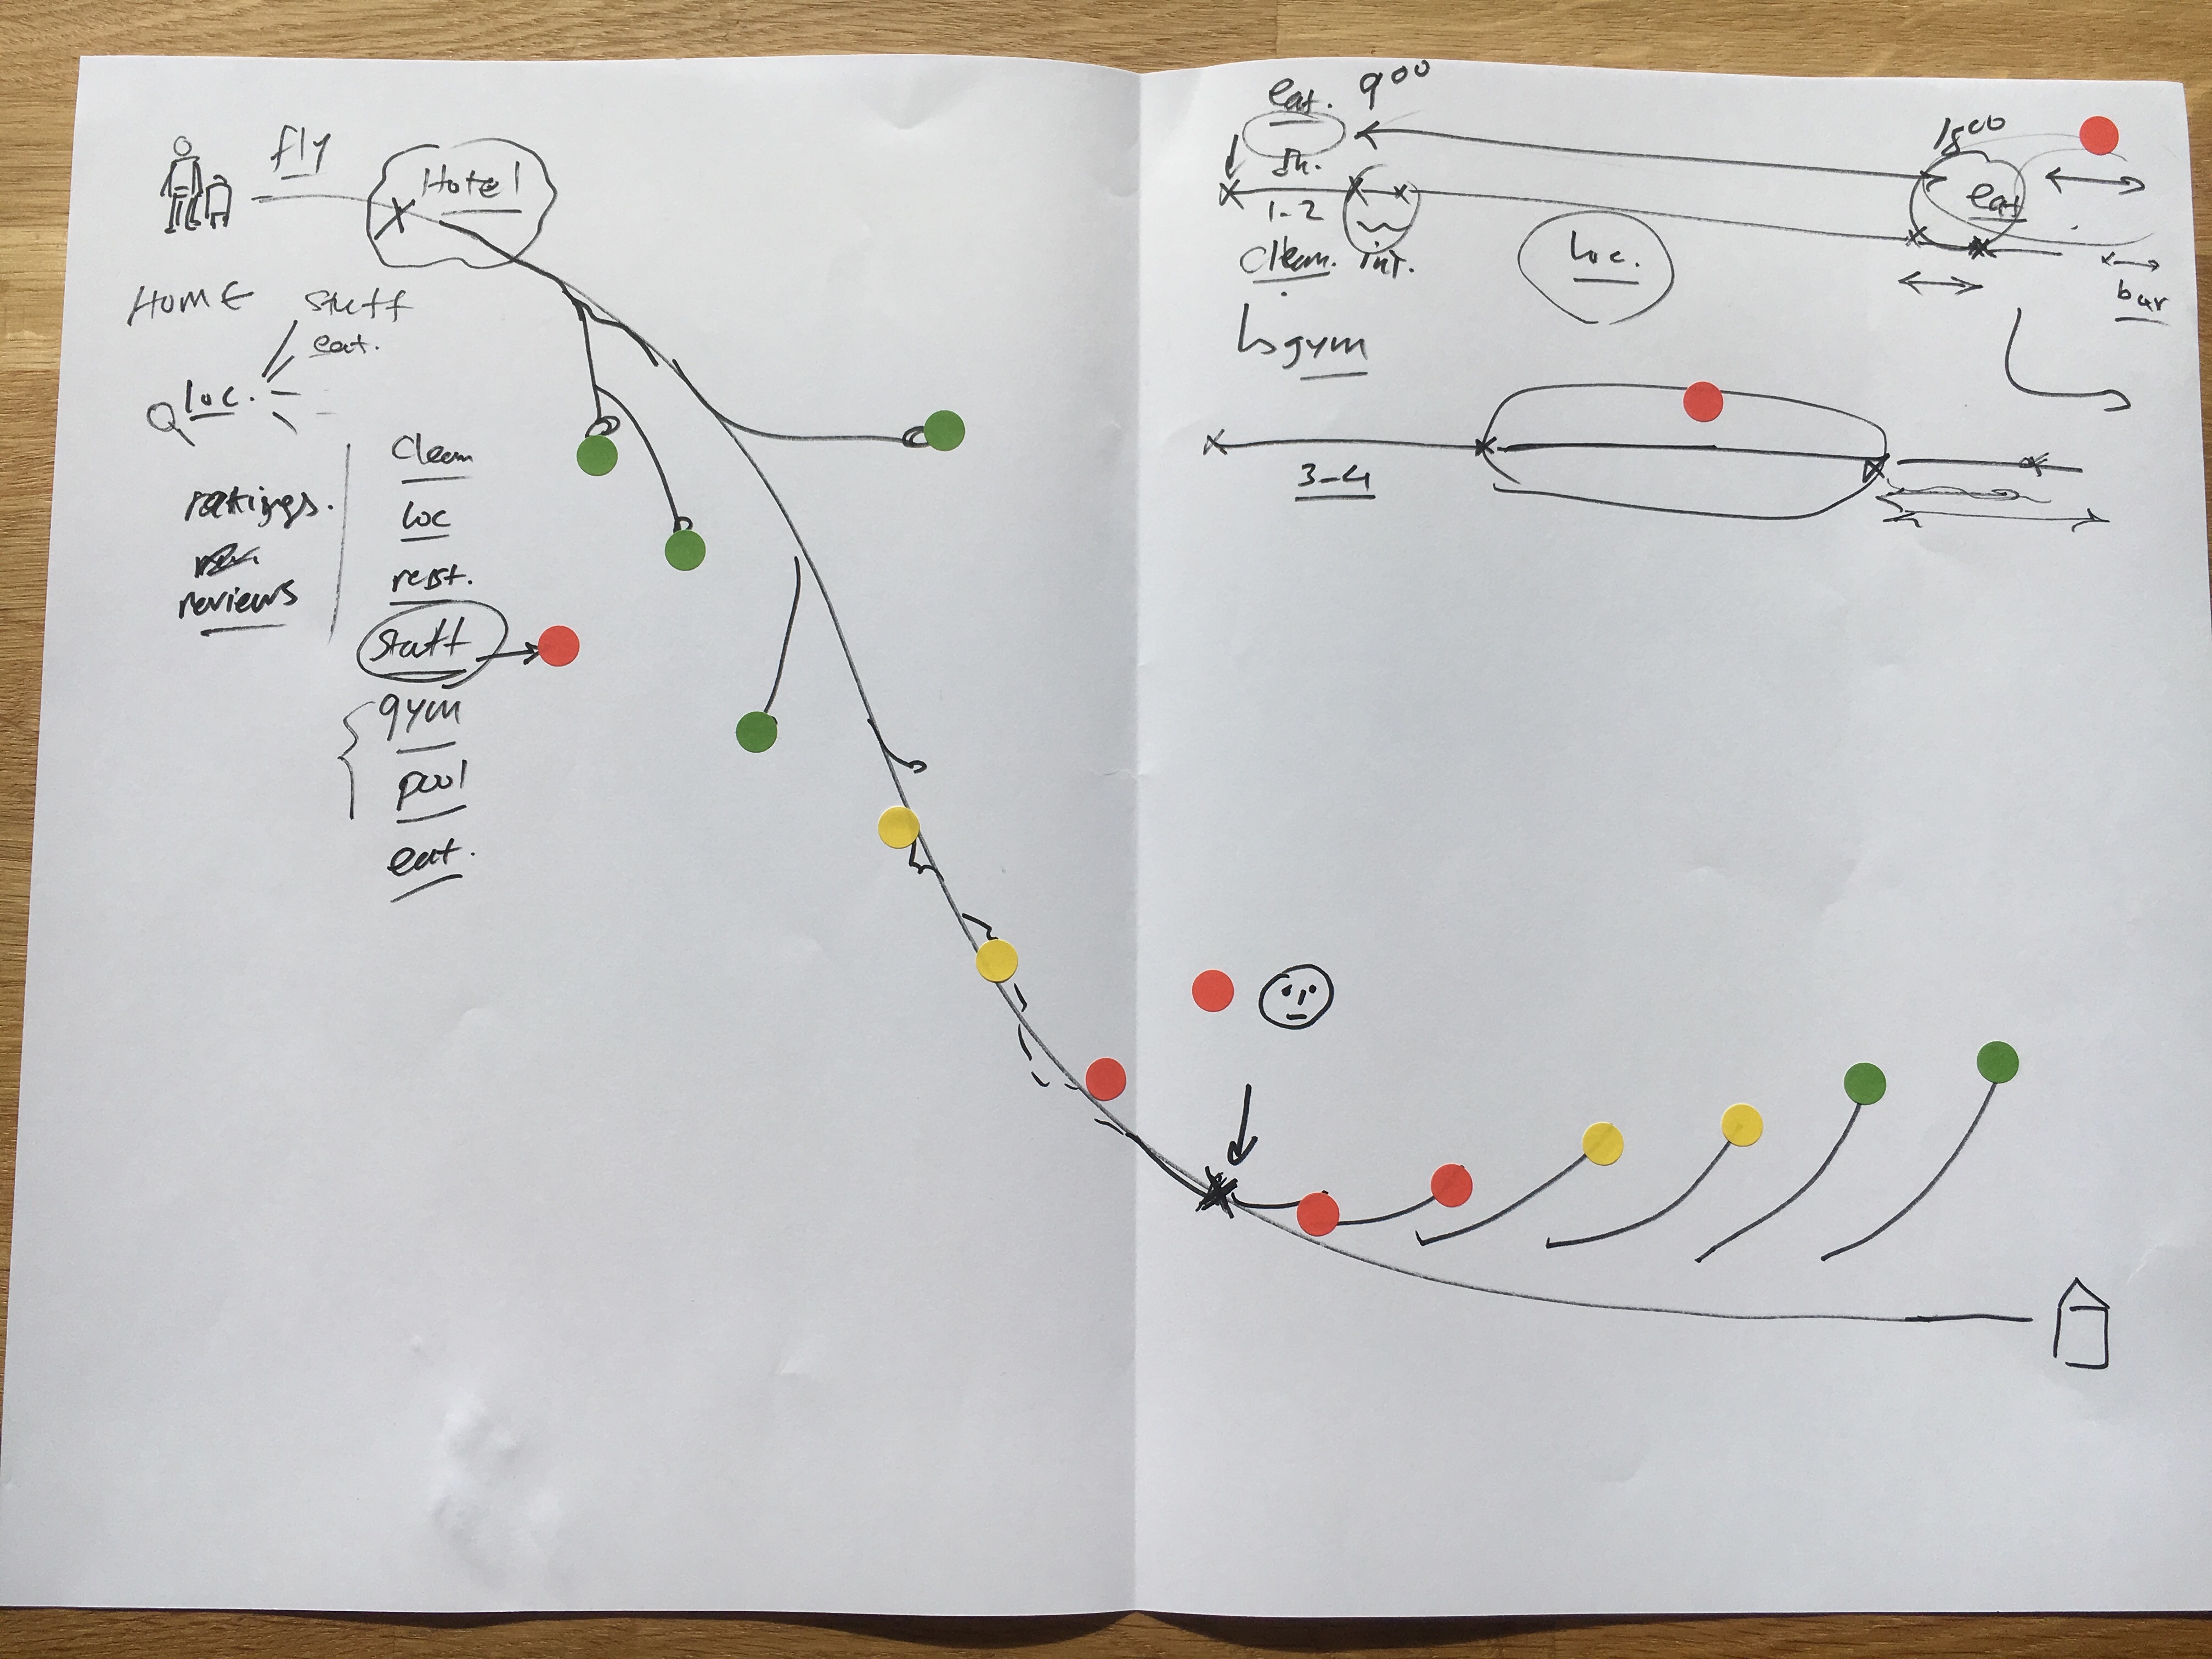 fly
Hotel
HOME
staff
eat.
Q loc.
Clean
ratings.
loc
rest.
reviews
staff
gym
pool
eat.
eat. 9⁰⁰
18⁰⁰
1-2
eat
clean. int.
loc.
bar
↳ gym
3-4